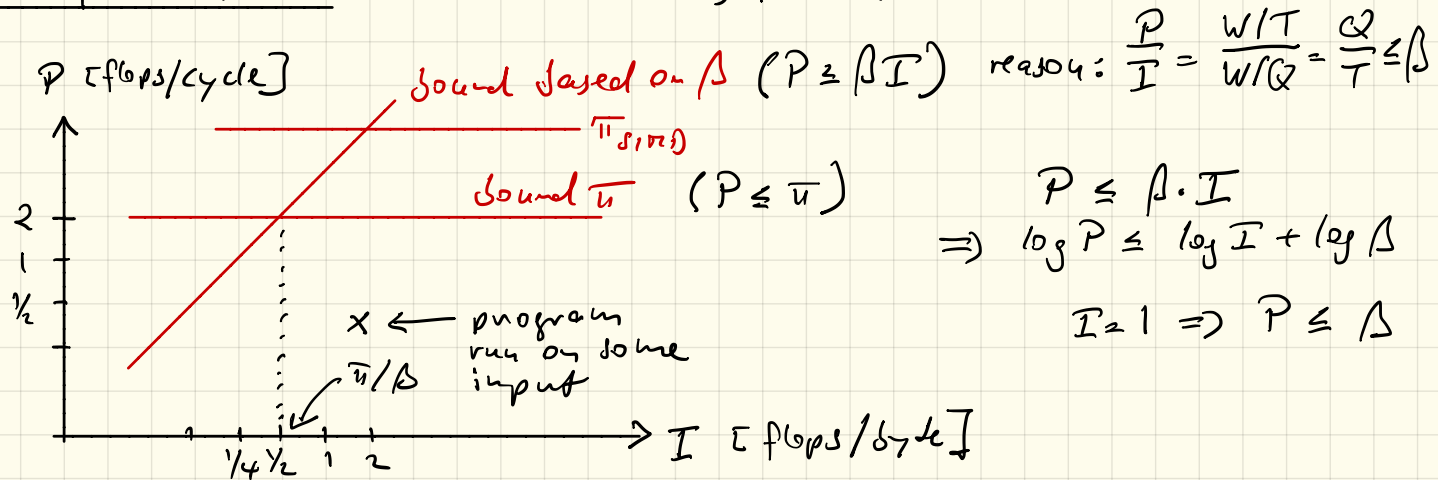 P [flops/cycle]
bound based on β (P ≤ βI)
reason: P/I = (W/T)/(W/Q) = Q/T ≤ β
π_SIMD
bound π (P ≤ π)
2
1
1/2
P ≤ β · I
⇒ log P ≤ log I + log β
I = 1 ⇒ P ≤ β
x ← program
run on some
input
π/β
1/4 1/2 1 2
I [flops/byte]